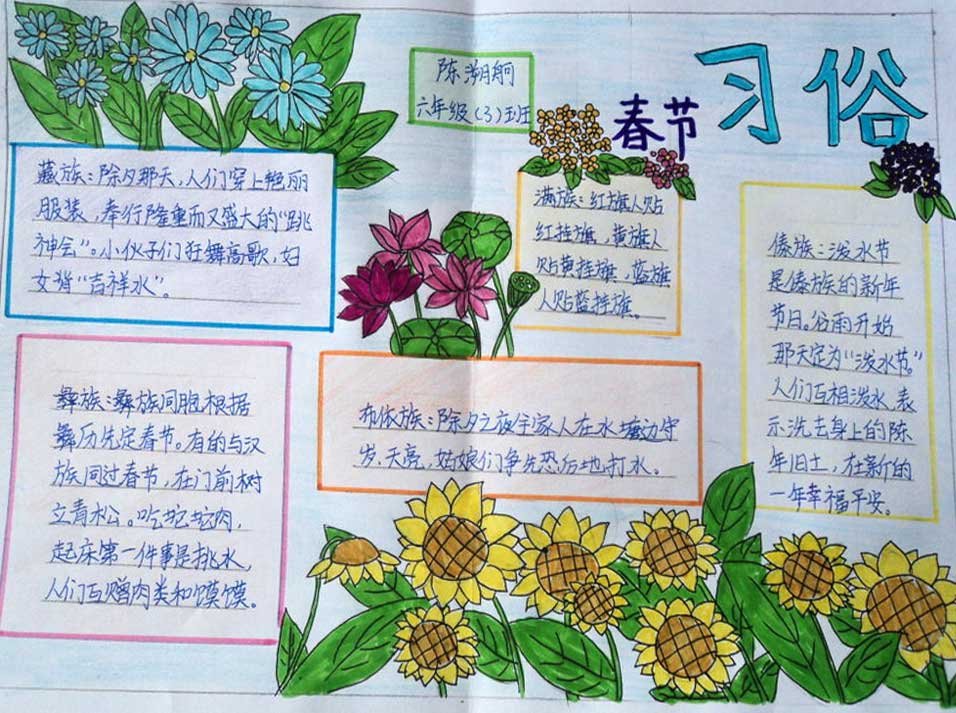 春节 习俗
陈湖舸
六年级(3)班
藏族：除夕那天，人们穿上艳丽
服装，奉行隆重而又盛大的“跳
神会”。小伙子们狂舞高歌，妇
女背“吉祥水”。
满族：红旗人贴
红挂旗，黄旗人
贴黄挂旗，蓝旗
人贴蓝挂旗。
傣族：泼水节
是傣族的新年
节日。谷雨开始
那天定为“泼水节”
人们互相泼水，表
示洗去身上的陈
年旧土，在新的
一年幸福平安。
彝族：彝族同胞根据
彝历先定春节。有的与汉
族同过春节，在门前树
立青松。吃坨坨肉，
起床第一件事是挑水，
人们互赠肉类和馍馍。
布依族：除夕之夜全家人在水塘边守
岁，天亮，姑娘们争先恐后地打水。